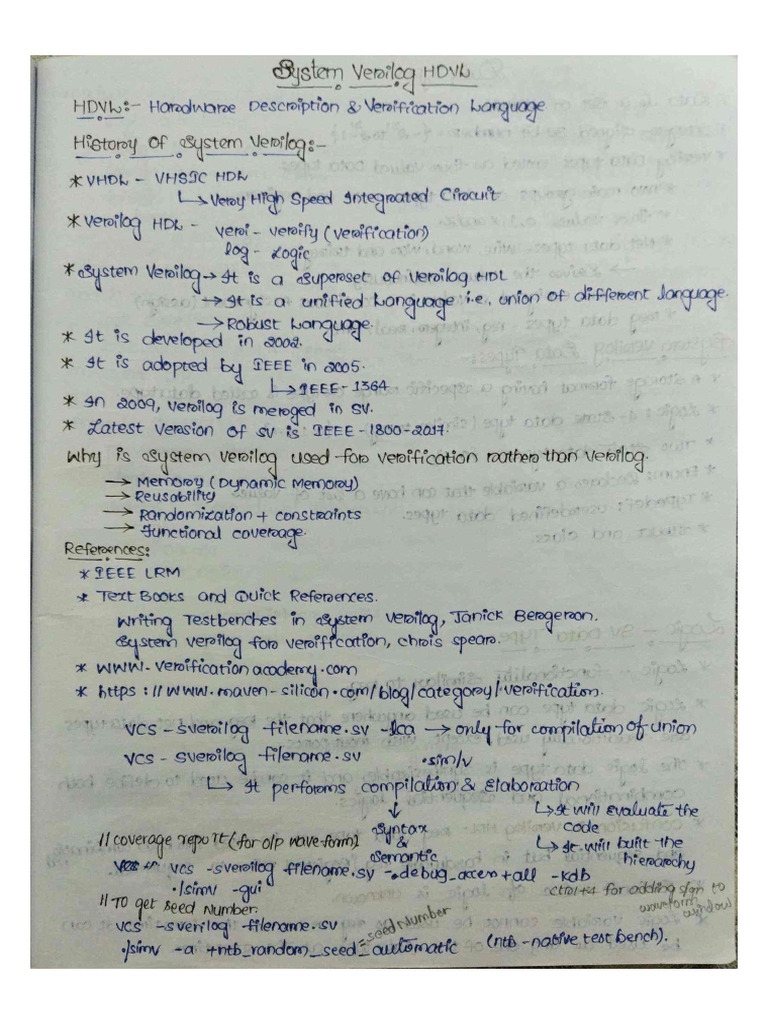 System Verilog HDVL
HDVL:- Hardware Description & Verification Language
History Of System Verilog:-
* VHDL - VHSIC HDL
↳ Very High Speed Integrated Circuit
* Verilog HDL - veri - verify (verification)
log - Logic
* System Verilog → It is a Superset of Verilog HDL
→ It is a unified Language i.e., union of different language.
→ Robust Language.
* It is developed in 2002.
* It is adopted by IEEE in 2005.
↳ IEEE - 1364
* In 2009, verilog is merged in SV.
* Latest version of SV is IEEE - 1800 - 2017.
Why is System Verilog used for verification rather than verilog.
→ Memory (Dynamic Memory)
→ Reusability
→ Randomization + constraints
→ Functional coverage.
References:
* IEEE LRM
* Text Books and Quick References.
Writing Testbenches in System Verilog, Janick Bergeron.
System verilog for verification, chris spear.
* WWW.verificationacademy.com
* https://www.maven-silicon.com/blog/category/verification.
VCS -sverilog filename.sv -lca → only for compilation of union
VCS -sverilog filename.sv .sim/v
↳ It performs compilation & Elaboration
↓ Syntax & Semantic
↳ It will evaluate the code
↳ It will built the hierarchy
// coverage report (for o/p wave form)
vcs -sverilog filename.sv -debug_accen+all -kdb
./simv -gui ctrl+4 for adding sgn to waveform window
// TO get seed Number.
vcs -sverilog -filename.sv
./simv -a +ntb_random_seed=automatic (ntb - native test bench).
=seed Number